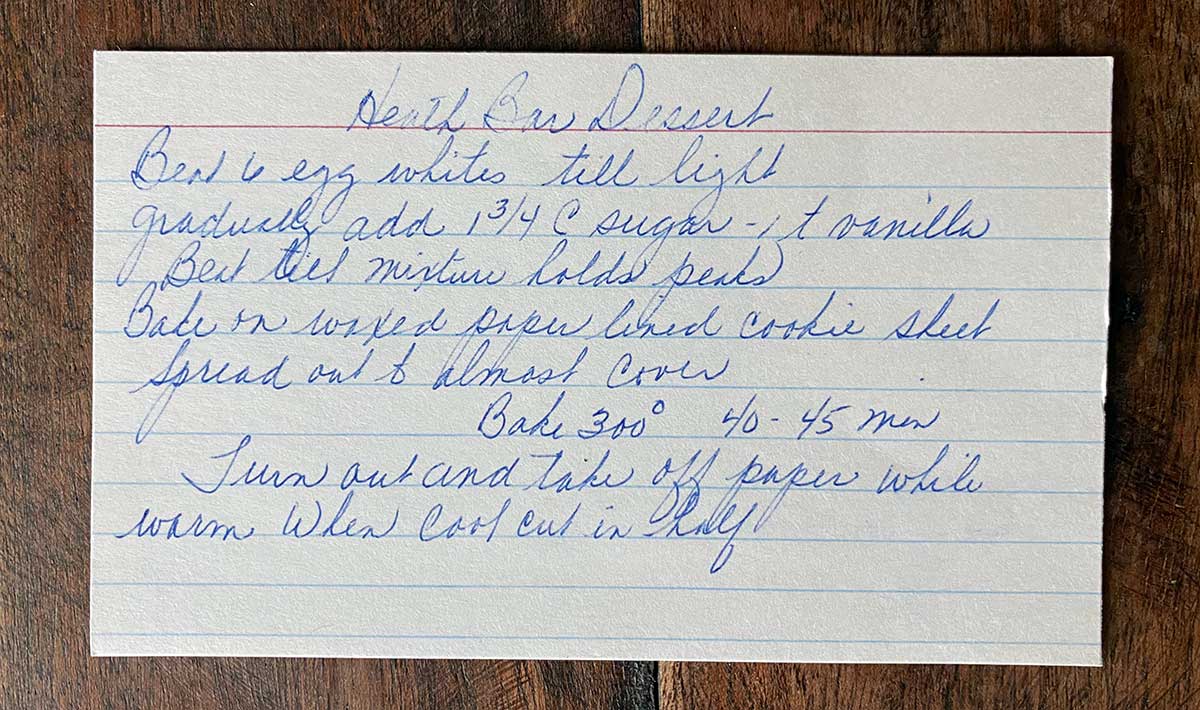 Heath Bar Dessert
Beat 6 egg whites till light
gradually add 1 3/4 C sugar - 1 t vanilla
Beat till mixture holds peaks
Bake on waxed paper lined cookie sheet
Spread out to almost cover
Bake 300° 40-45 min
Turn out and take off paper while
warm When cool cut in half